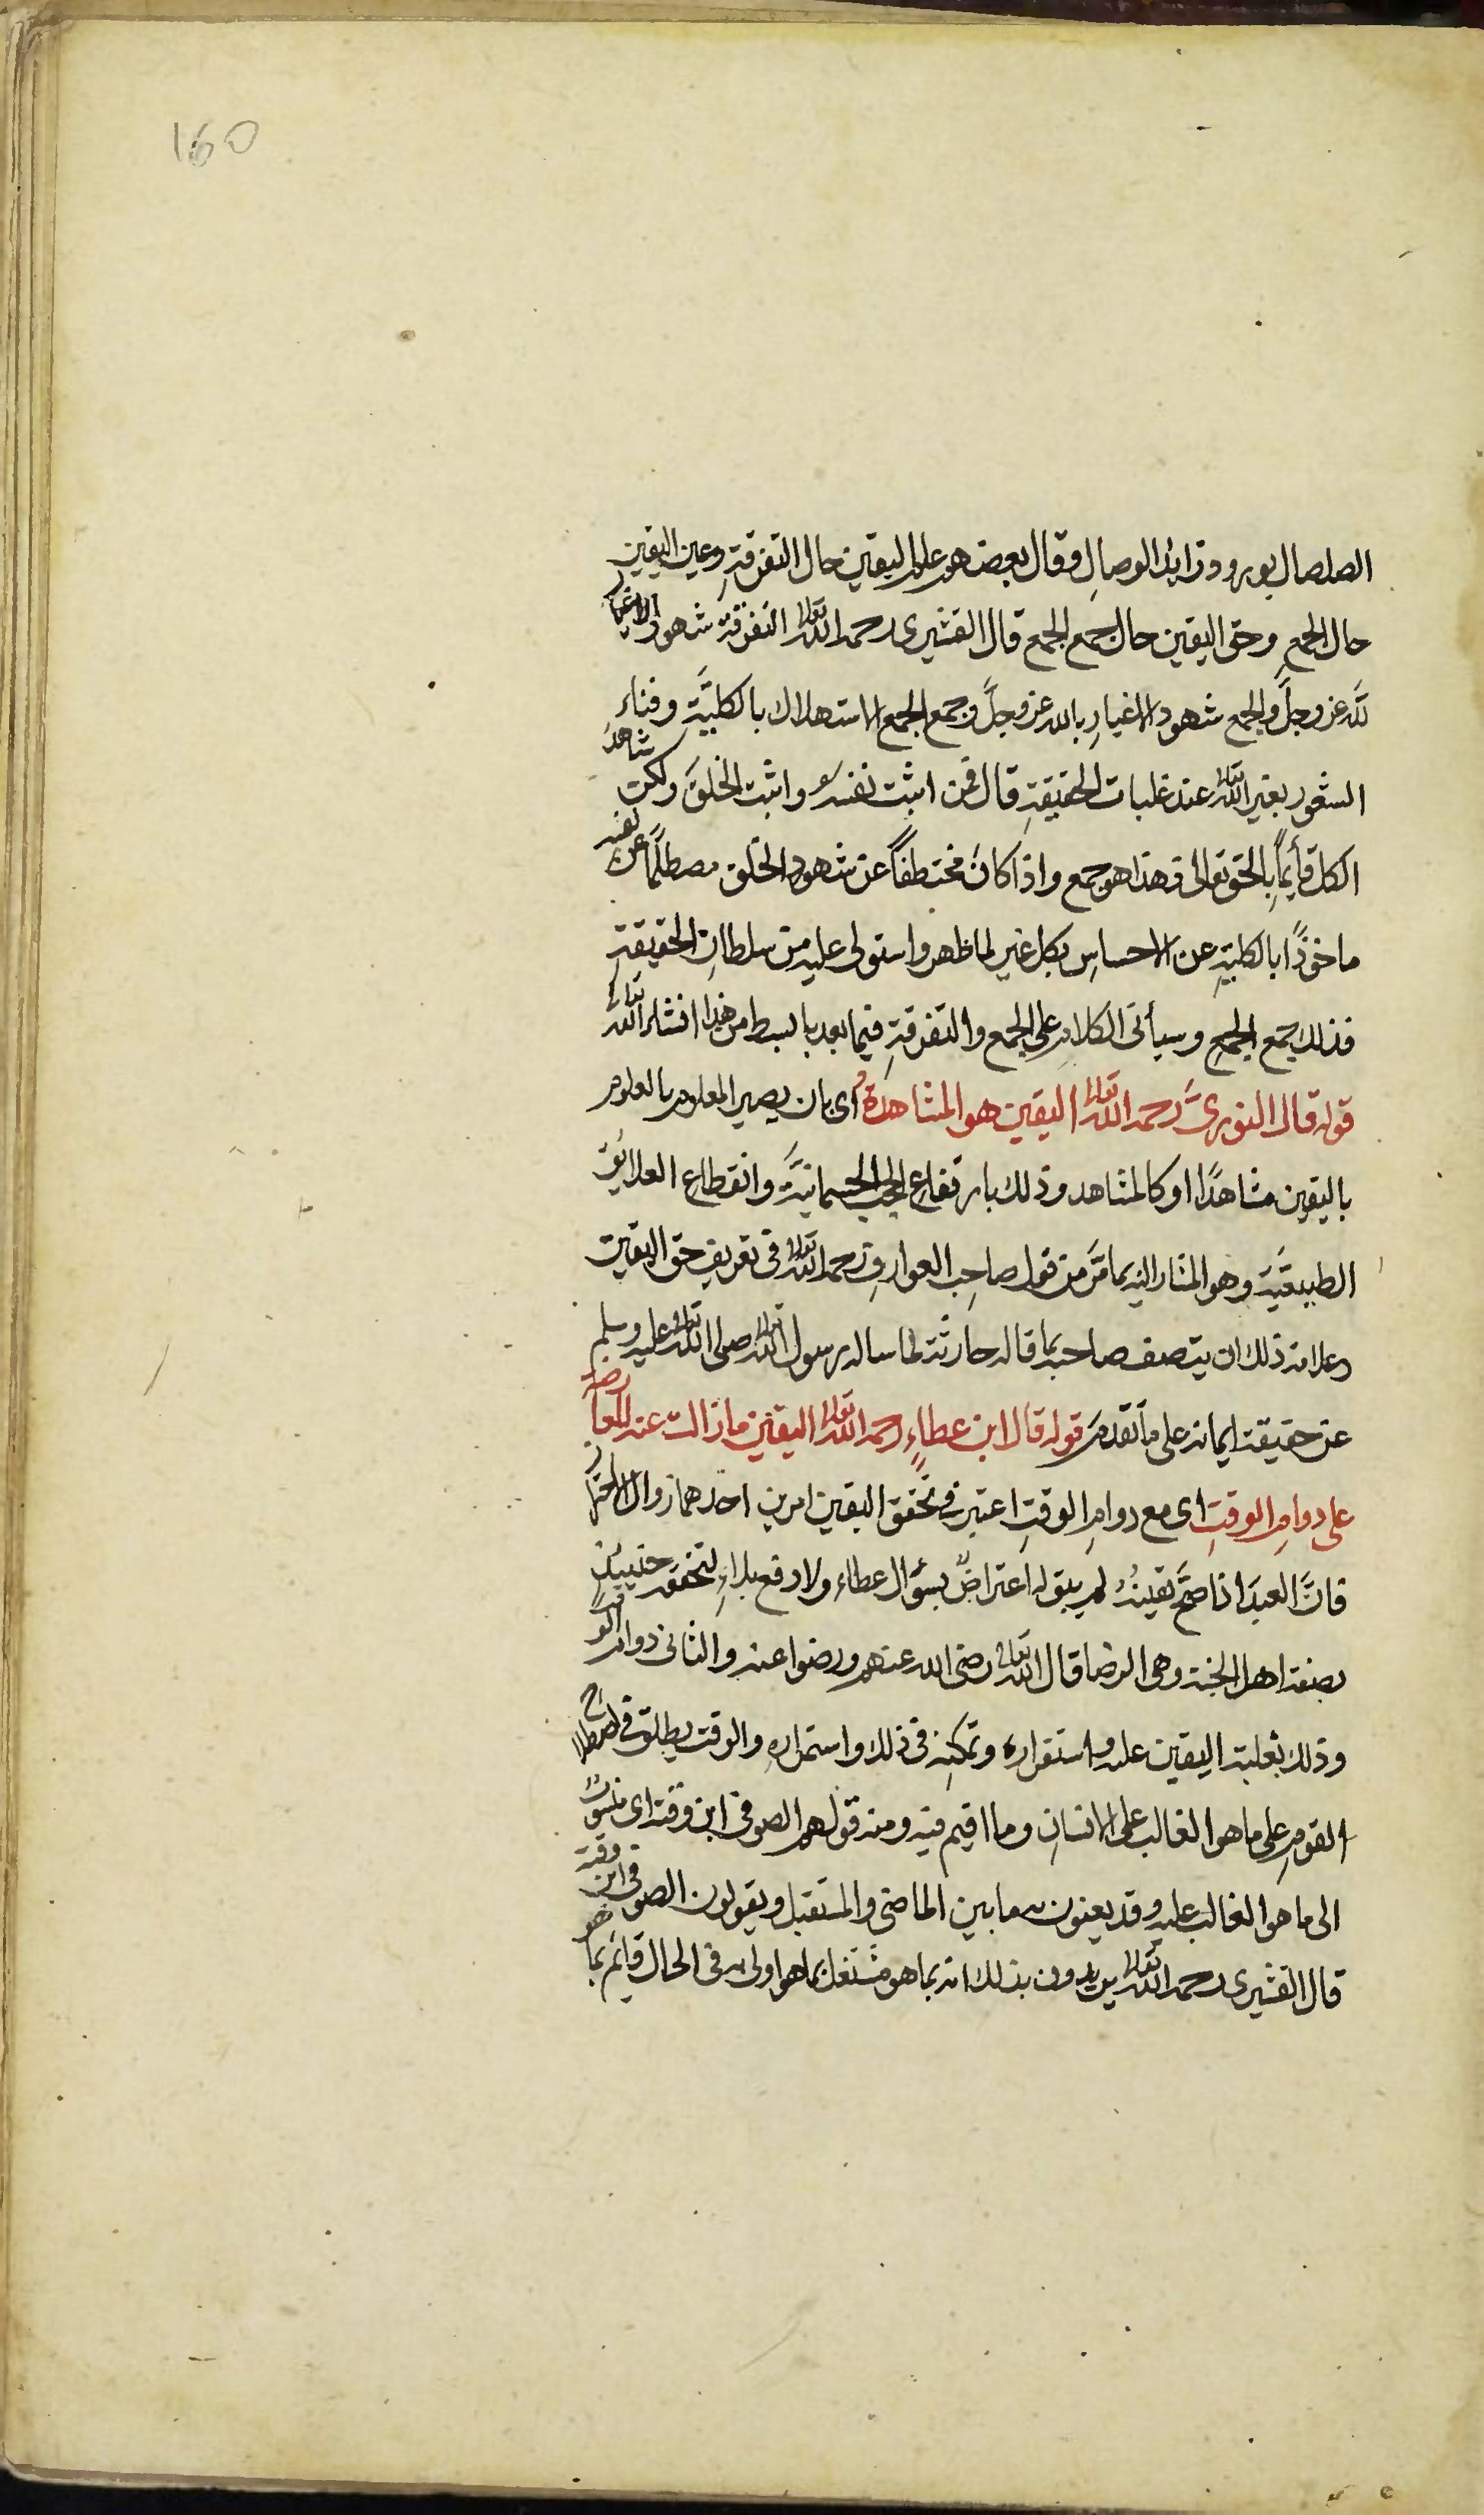 160
الصلصال بورود زايد الوصالِ وقال بعضهم علم اليقين حال التفرقةِ وعين اليقين
حال الجمعِ وحق اليقين حال جمع الجمع قال القشيرى رحمه الله تعالى التفرقة شهود الاغيار
لله عز وجلَّ والجمع شهود الاغيارِ بالله عز وجلَّ وجمع الجمع الاستهلاك بالكليَّة وفناءِ
الشعور بغير الله تعالى عند غلبات الحقيقةِ قال فمن اثبت نفسه واثبت الخلقَ ولكن شاهدَ
الكل قأيماً بالحق تعالى فهذا هو جمع واذا كانَ مختطفاً عن شهود الخلق مصطلماً عن نفسه
ماخوذًا بالكليةِ عن الاحساسِ بكل غير لما ظهر واستولى عليه من سلطانِ الحقيقةِ
فذلك جمع الجمعِ وسيأتى الكلام على الجمع والتفرقةِ فيما بعد بابسط من هذا انشاء الله تعالى
قوله قال النورىُّ رحمه الله تعالى اليقين هو المشاهدةُ اى بان يصير المعلوم بالعلوم
باليقين مشاهدًا او كالمشاهد وذلك بارتفاعِ الحجب الجسمانيَّة وانقطاعِ العلايقِ
الطبيعيَّة وهو المشار اليه بما مَرَّ من قول صاحِب العوارفِ رحمه الله تعالى فى تعريف حق اليقين
وعلامة ذلك ان يتصف صاحبه بما قاله حارثة لما ساله رسول الله تعالى صلى الله تعالى عليه وسلم
عن حقيقة ايمانه على ما تقدم قوله قال ابن عطاءٍ رحمه الله تعالى اليقين ما زالت عنه المعارضة
على دوامِ الوقتِ اى مع دوامِ الوقتِ اعتبر فى تحقق اليقين امرين احدهما زوال الاختيار
فانَّ العبدَ اذا صحَّ يقينُهُ لم يبق له اعتراضٌ بسؤال عطاء ولا دفع بلاءٍ لتحققه حينيئذٍ
بصفة اهل الجنة وهى الرضا قال الله تعالى رضى الله عنهم ورضوا عنه والثانى دوام الوقت
وذلك بغلبة اليقين عليه واستقراره وتمكنه فى ذلك واستمرارهِ والوقت يطلق فى اصطلاح
القومِ على ما هو الغالب على الانسانِ وما اقيم فيه ومنه قولهم الصوفى ابن وقته اى منسوب
الى ما هو الغالب عليه وقد يعنون به ما بين الماضى والمستقبل ويقولون الصوفى ابن وقته
قال القشيرى رحمه الله تعالى يريدون بذلك انه بما هو مشتغل بما هو اولى به فى الحال قائم بما هو